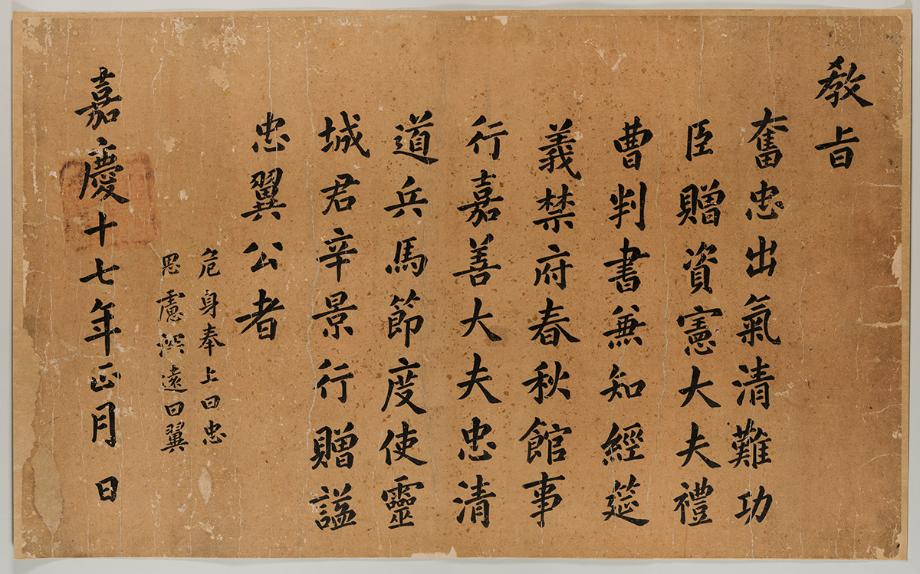 敎旨
奮忠出氣清難功
臣贈資憲大夫禮
曹判書兼知經筵
義禁府春秋館事
行嘉善大夫忠清
道兵馬節度使靈
城君辛景行贈謚
忠翼公者
危身奉上曰忠
思慮深遠曰翼
嘉慶十七年正月 日